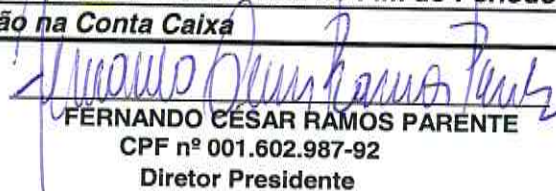 ão na Conta Caixa
FERNANDO CÉSAR RAMOS PARENTE
CPF nº 001.602.987-92
Diretor Presidente